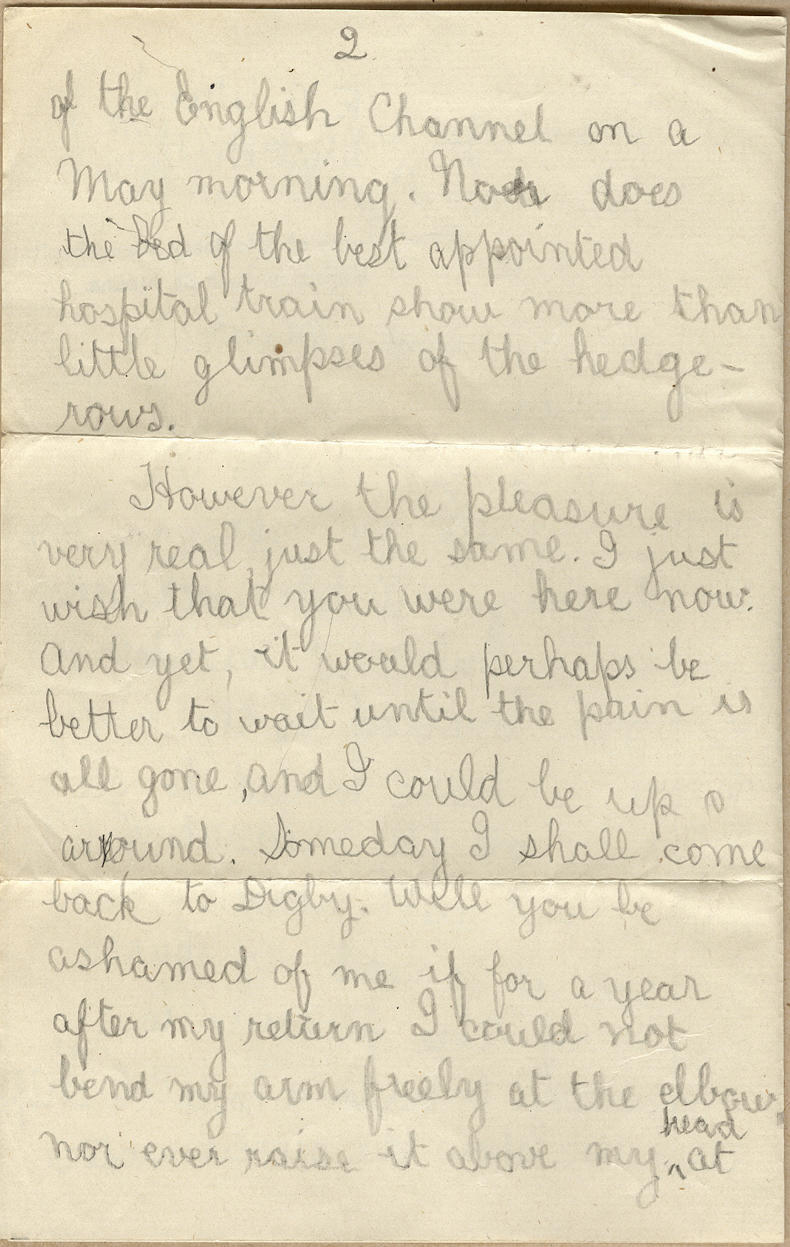 2
of the English Channel on a
May morning. Nor does
the bed of the best appointed
hospital train show more than
little glimpses of the hedge-
rows.
However the pleasure is
very real just the same. I just
wish that you were here now.
And yet, it would perhaps be
better to wait until the pain is
all gone, and I could be up &
around. Someday I shall come
back to Digby. Will you be
ashamed of me if for a year
after my return I could not
bend my arm freely at the elbow,
nor ever raise it above my head at